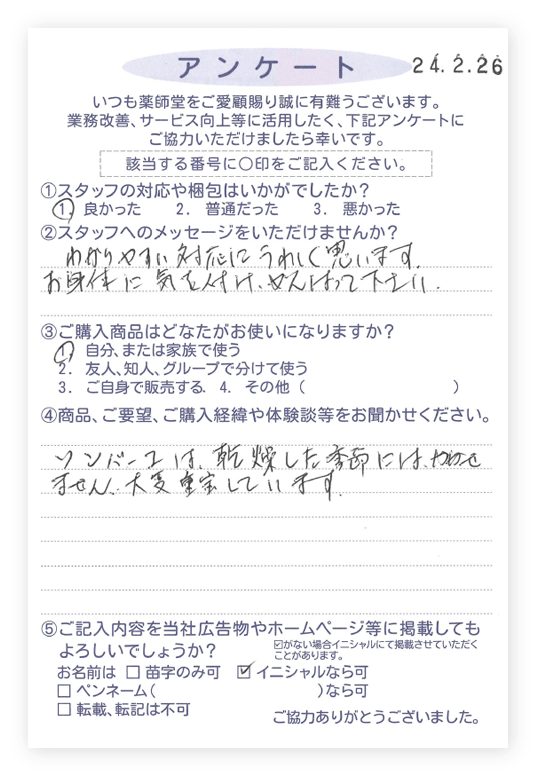 アンケート
24.2.26
いつも薬師堂をご愛顧賜り誠に有難うございます。
業務改善、サービス向上等に活用したく、下記アンケートに
ご協力いただけましたら幸いです。
該当する番号に○印をご記入ください。
①スタッフの対応や梱包はいかがでしたか？
1. 良かった 2. 普通だった 3. 悪かった
②スタッフへのメッセージをいただけませんか？
わかりやすい対応にうれしく思います。
お身体に気を付け、がんばって下さい。
③ご購入商品はどなたがお使いになりますか？
1. 自分、または家族で使う
2. 友人、知人、グループで分けて使う
3. ご自身で販売する. 4. その他（ ）
④商品、ご要望、ご購入経緯や体験談等をお聞かせください。
ソンバーユは、乾燥した季節には、かかせ
ません。大変重宝しています。
⑤ご記入内容を当社広告物やホームページ等に掲載しても
よろしいでしょうか？
☑がない場合イニシャルにて掲載させていただく
ことがあります。
お名前は □ 苗字のみ可 ☑ イニシャルなら可
□ ペンネーム（ ）なら可
□ 転載、転記は不可
ご協力ありがとうございました。